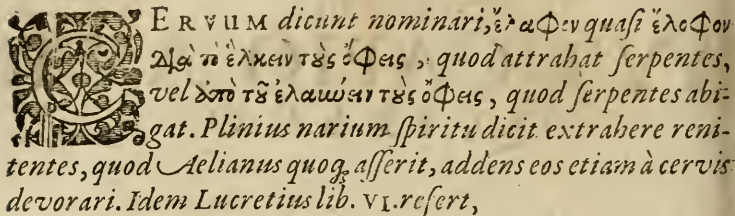 CERVUM dicunt nominari, ἔλαφον quasi ἔλοφον
διὰ τὸ ἕλκειν τοὺς ὄφεις, quod attrahat serpentes,
vel ἀπὸ τοῦ ἐλαύνειν τοὺς ὄφεις, quod serpentes abi-
gat. Plinius narium spiritu dicit extrahere reni-
tentes, quod Aelianus quoq; asserit, addens eos etiam à cervis
devorari. Idem Lucretius lib. VI. refert,